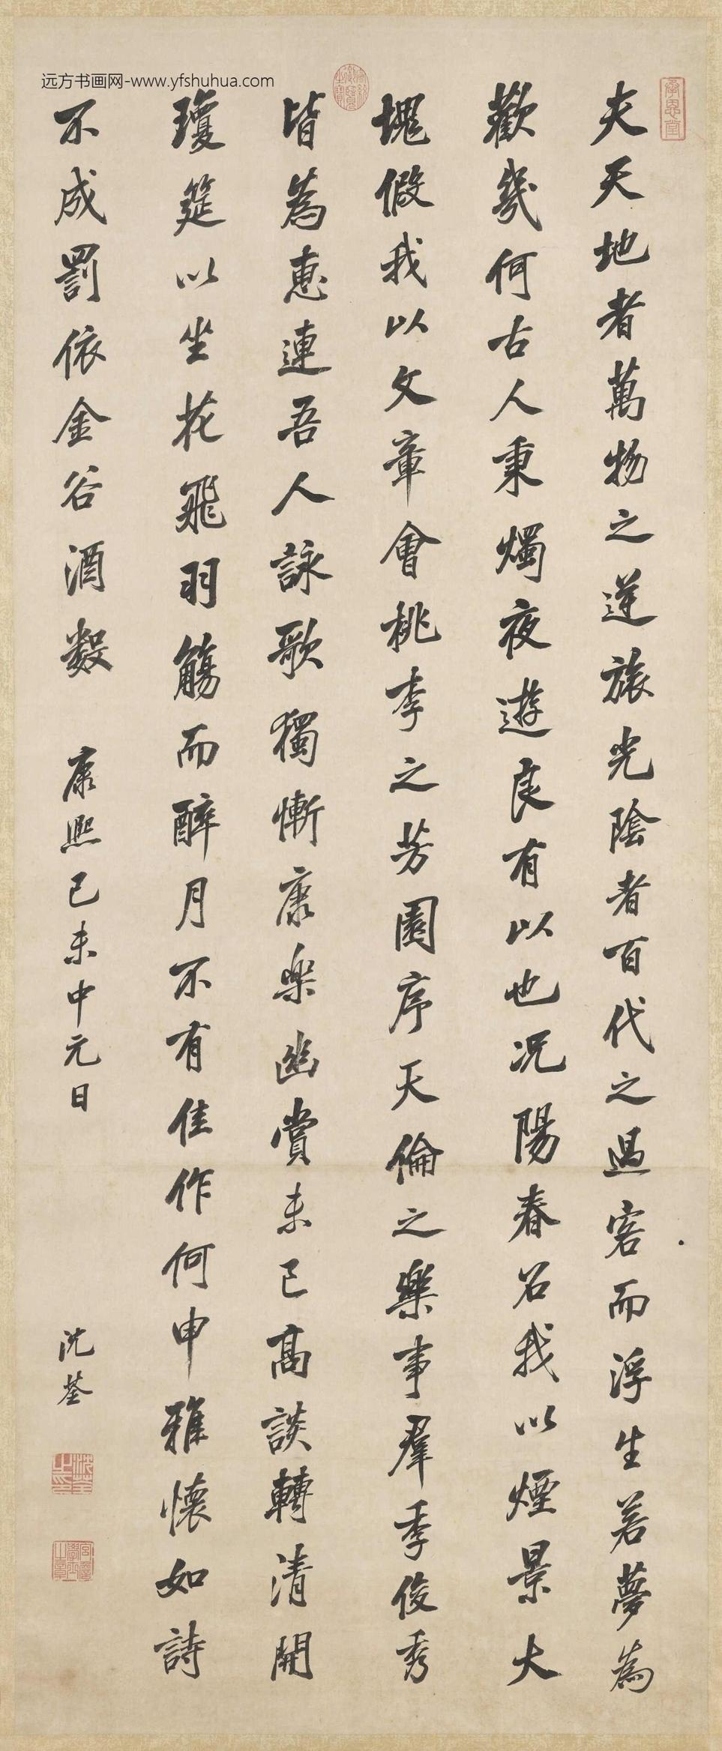 远方书画网-www.yfshuhua.com
夫天地者萬物之逆旅光陰者百代之過客而浮生若夢為
歡幾何古人秉燭夜遊良有以也況陽春召我以煙景大
塊假我以文章會桃李之芳園序天倫之樂事羣季俊秀
皆為惠連吾人詠歌獨慚康樂幽賞未已高談轉清開
瓊筵以坐花飛羽觴而醉月不有佳作何申雅懷如詩
不成罰依金谷酒數 康熙己未中元日 沈荃